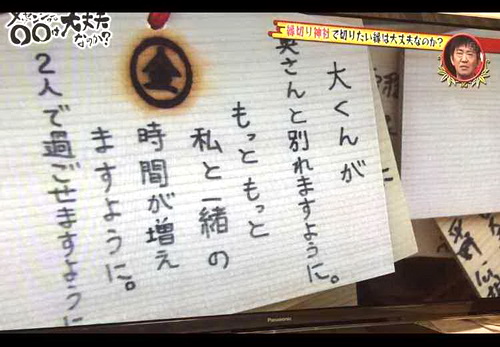 〇〇は大丈夫なのか?
縁切り神社で切りたい縁は大丈夫なのか?
大くんが
奥さんと別れますように。
もっともっと
私と一緒の
時間が増え
ますように。
2人で過ごせますように
金
Panasonic